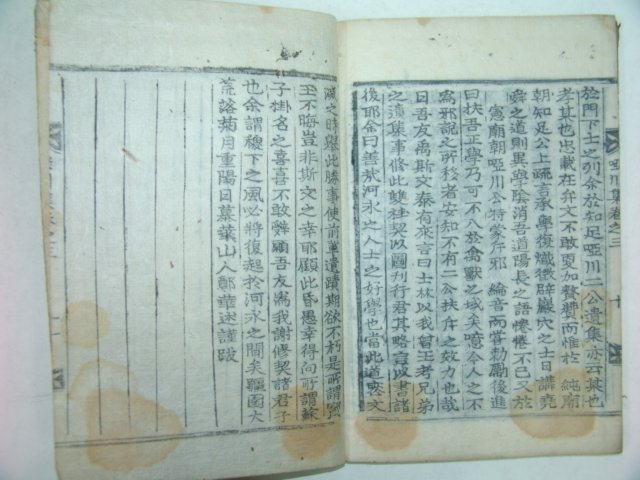 於門下士之列余於知足啞川二公遺集亦云其也
孝其也忠載在弁文不敢更加贅而惟於 純廟
朝知足公上疏言承擧復徵辟巖穴之士日講堯
舜之道則異學陰消吾道陽長之語惓惓不已又於
憲廟朝啞川公特蒙斥邪 綸音而嘗勸勵後進
曰扶吾正學乃可不入於禽獸之域矣噫今人之不
爲邪說之所移者安知不有二公扶斥之效力也哉
日吾友禹斯文泰有來言曰士林以我曾王考兄弟
之遺集事修此雙社契以圖刊行君其略言以書諸
後耶余曰善哉河水之人士之好學也當此道喪文
啞川集卷之三
十
滅之時擧此勝事使前輩遺蹟期欲不朽是所謂寶
玉不晦豈非斯文之幸耶顧此昏愚幸得向所謂蘇
子挂名之喜喜不敢辭顧吾友爲我謝修契諸君子
也余謂稷下之風必將復起於河永之間矣圉大
荒落菊月重陽日葉山人鄭華述謹跋